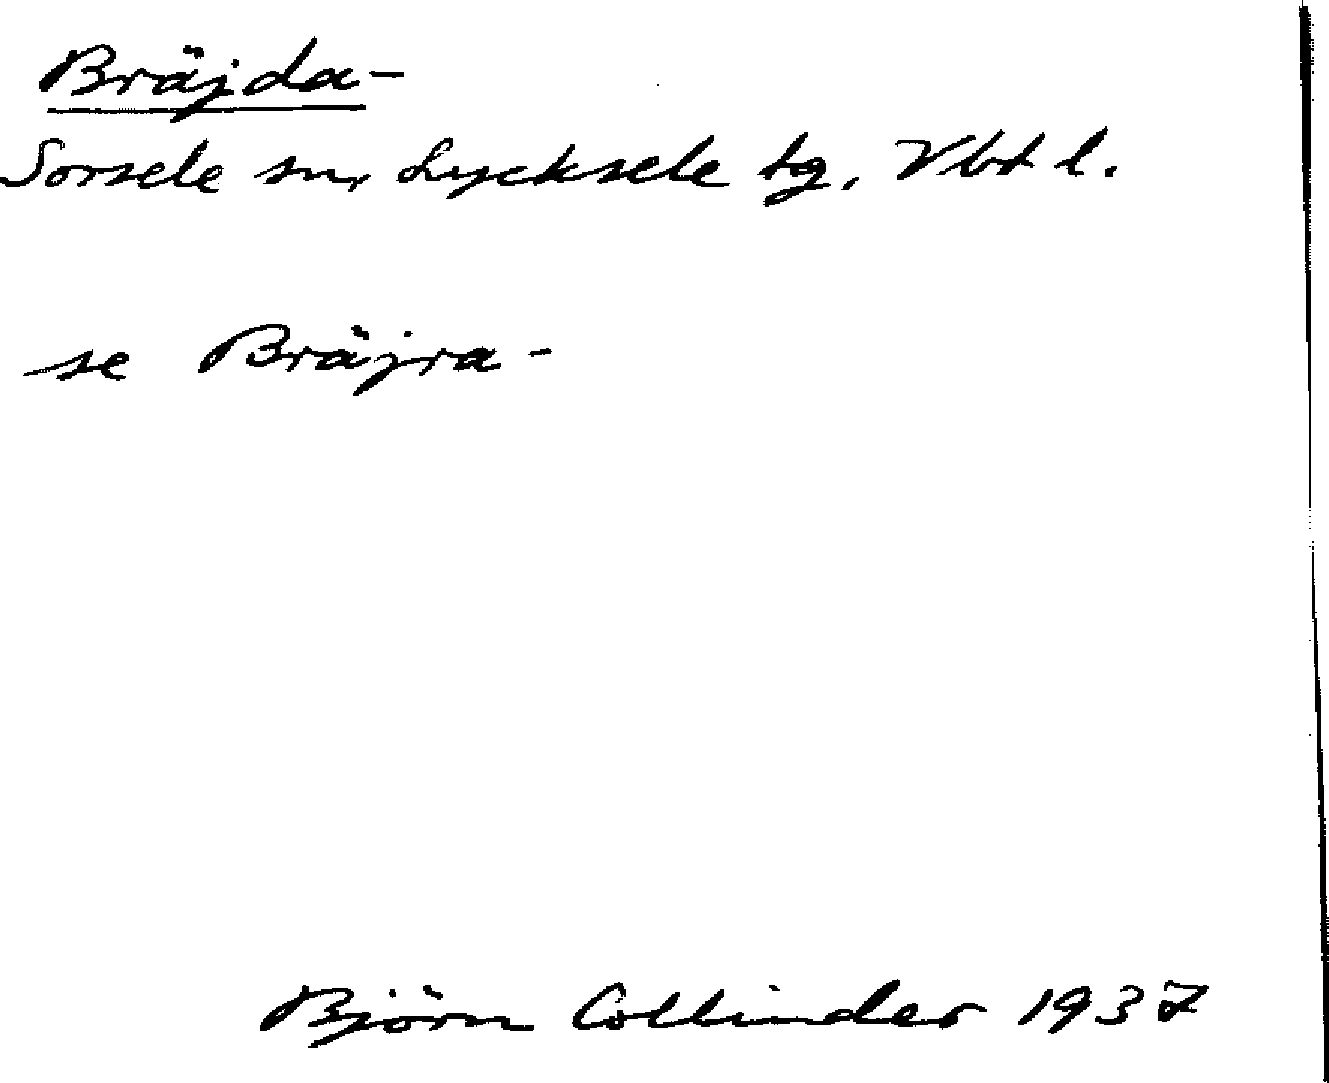 Bräjda-
Sorsele sn, Lycksele tg. Vbt l.
se Bräjra-
Björn Collinder 1937